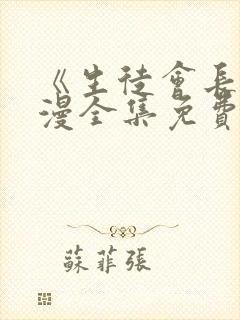 《生徒會長
漫全集免費
蘇菲張